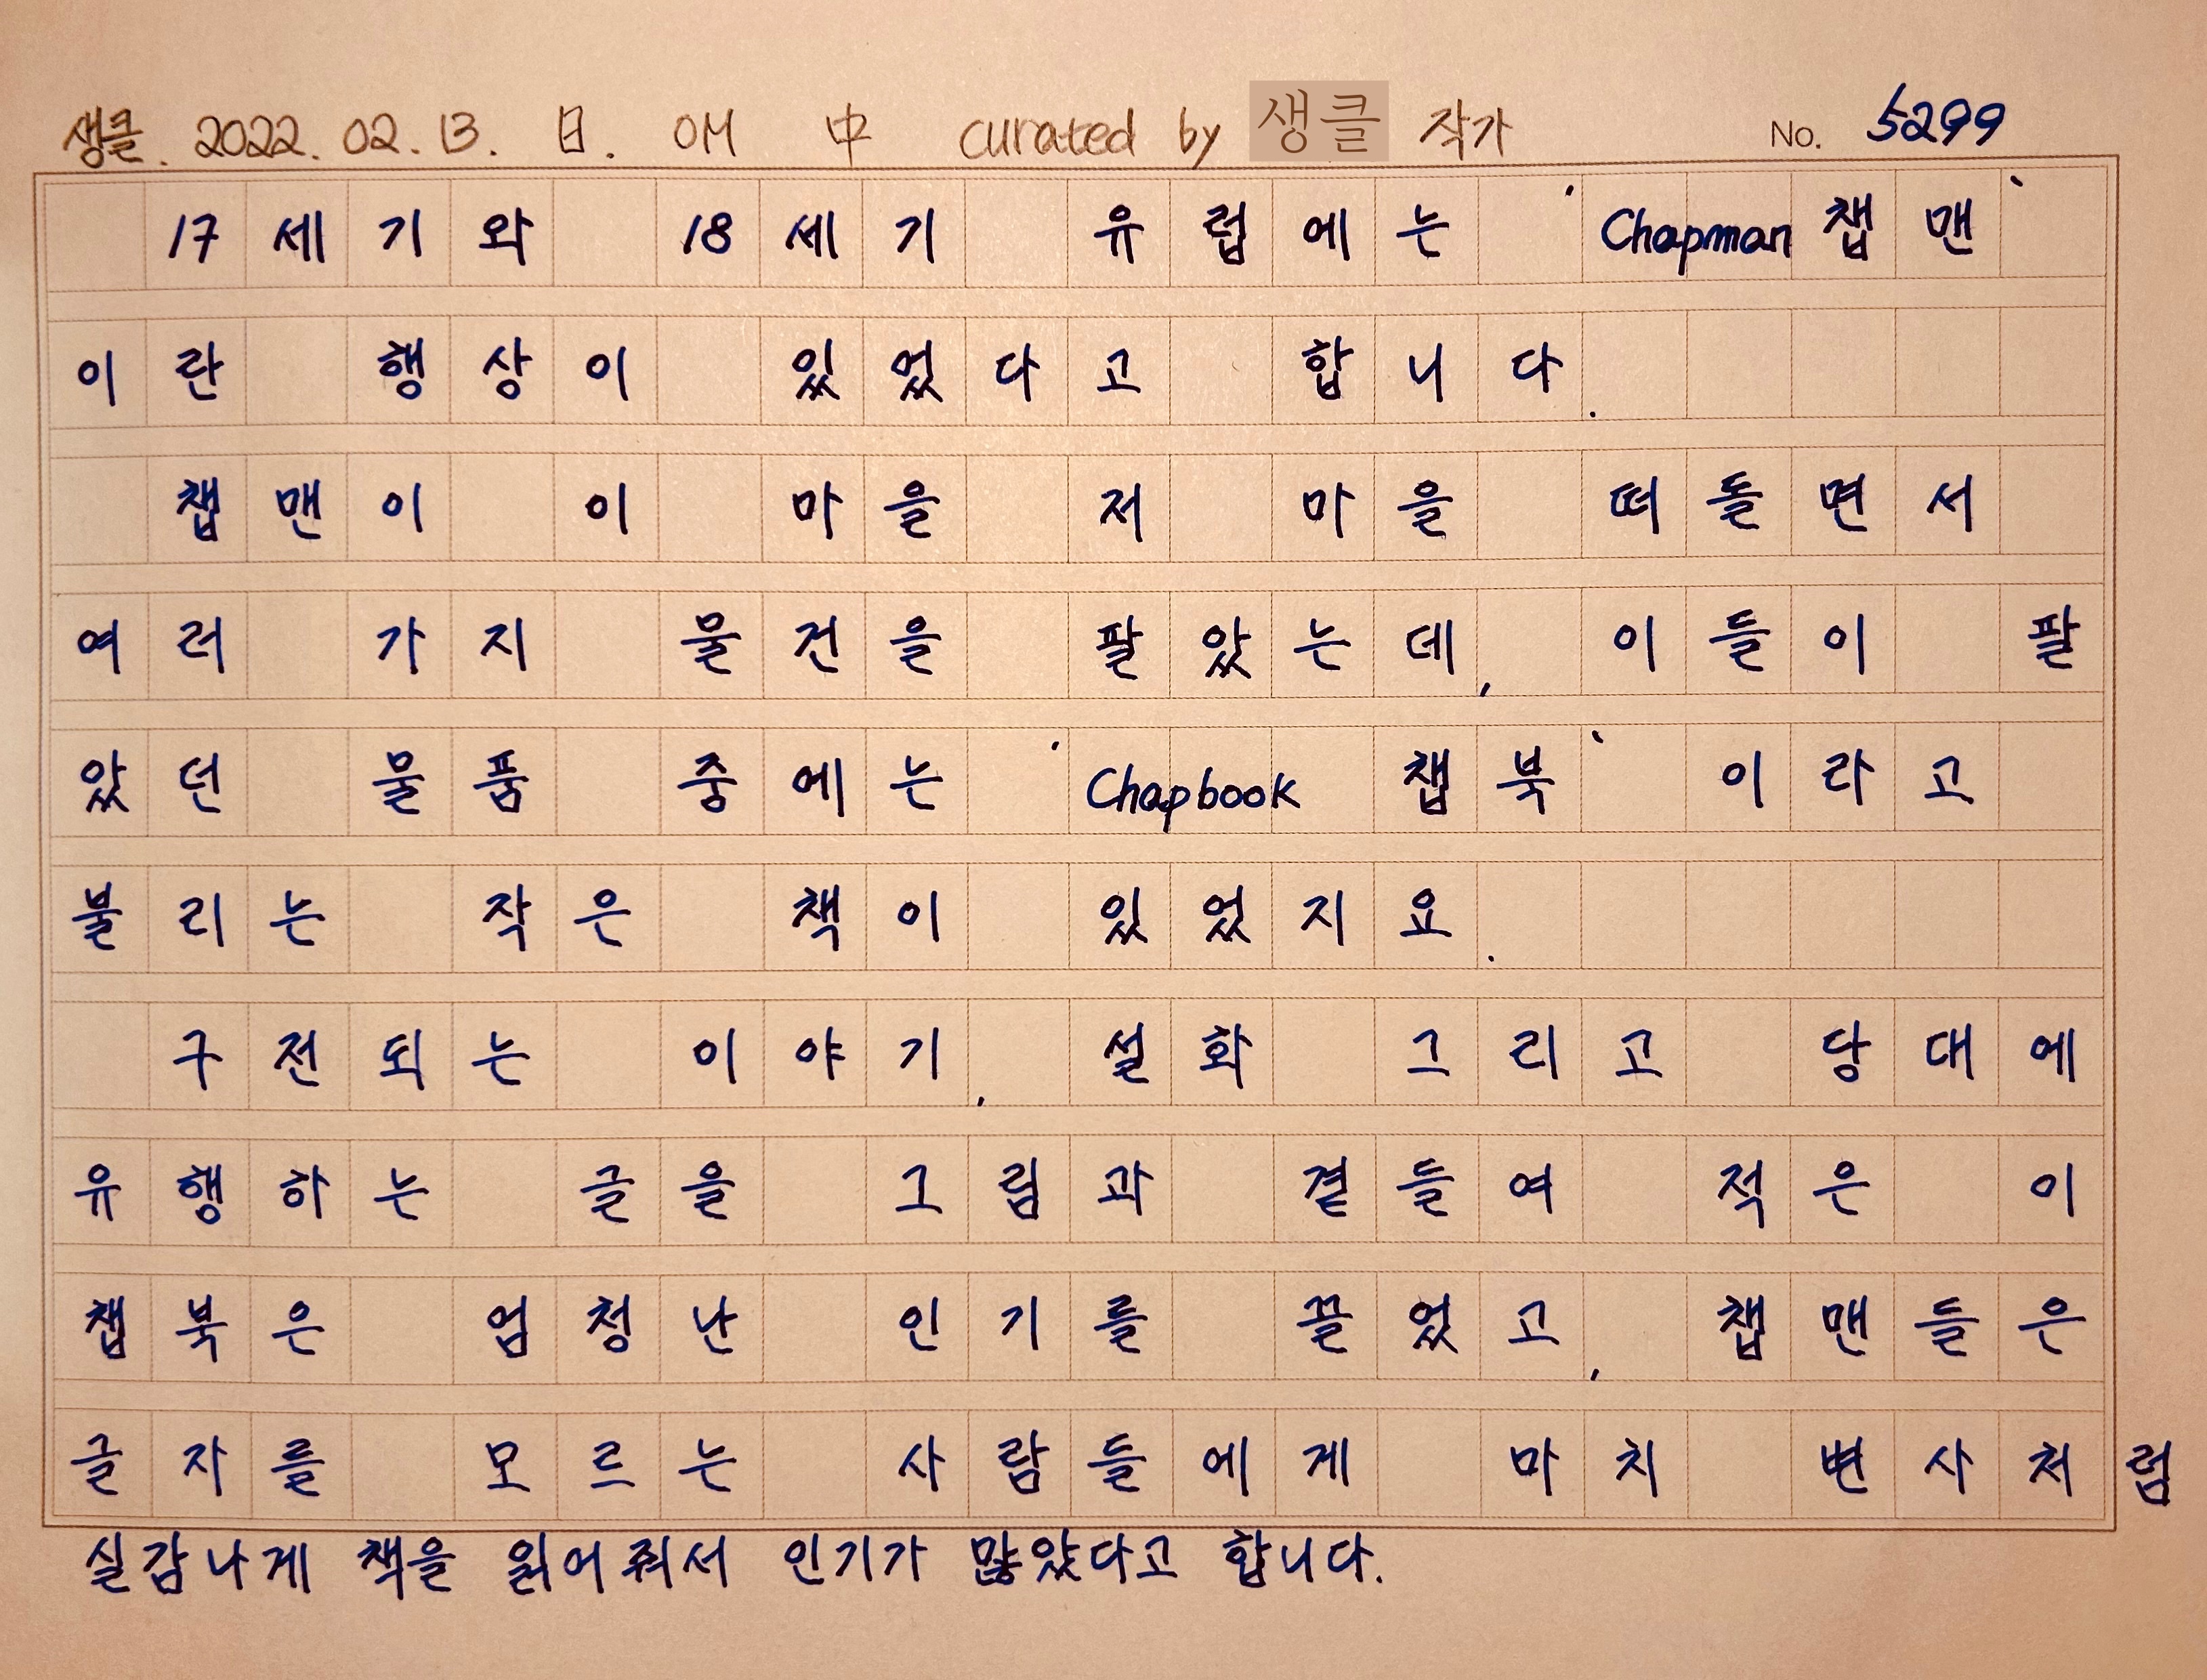 생클. 2022. 02. 13. 日. OH 中 curated by 생클 작가 No. 5299
17세기와 18세기 유럽에는 'Chapman 챕맨'
이란 행상이 있었다고 합니다.
챕맨이 이 마을 저 마을 떠돌면서
여러 가지 물건을 팔았는데, 이들이 팔
았던 물품 중에는 'Chapbook 챕북' 이라고
불리는 작은 책이 있었지요.
구전되는 이야기, 설화 그리고 당대에
유행하는 글을 그림과 곁들여 적은 이
챕북은 엄청난 인기를 끌었고, 챕맨들은
글자를 모르는 사람들에게 마치 변사처럼
실감나게 책을 읽어줘서 인기가 많았다고 합니다.